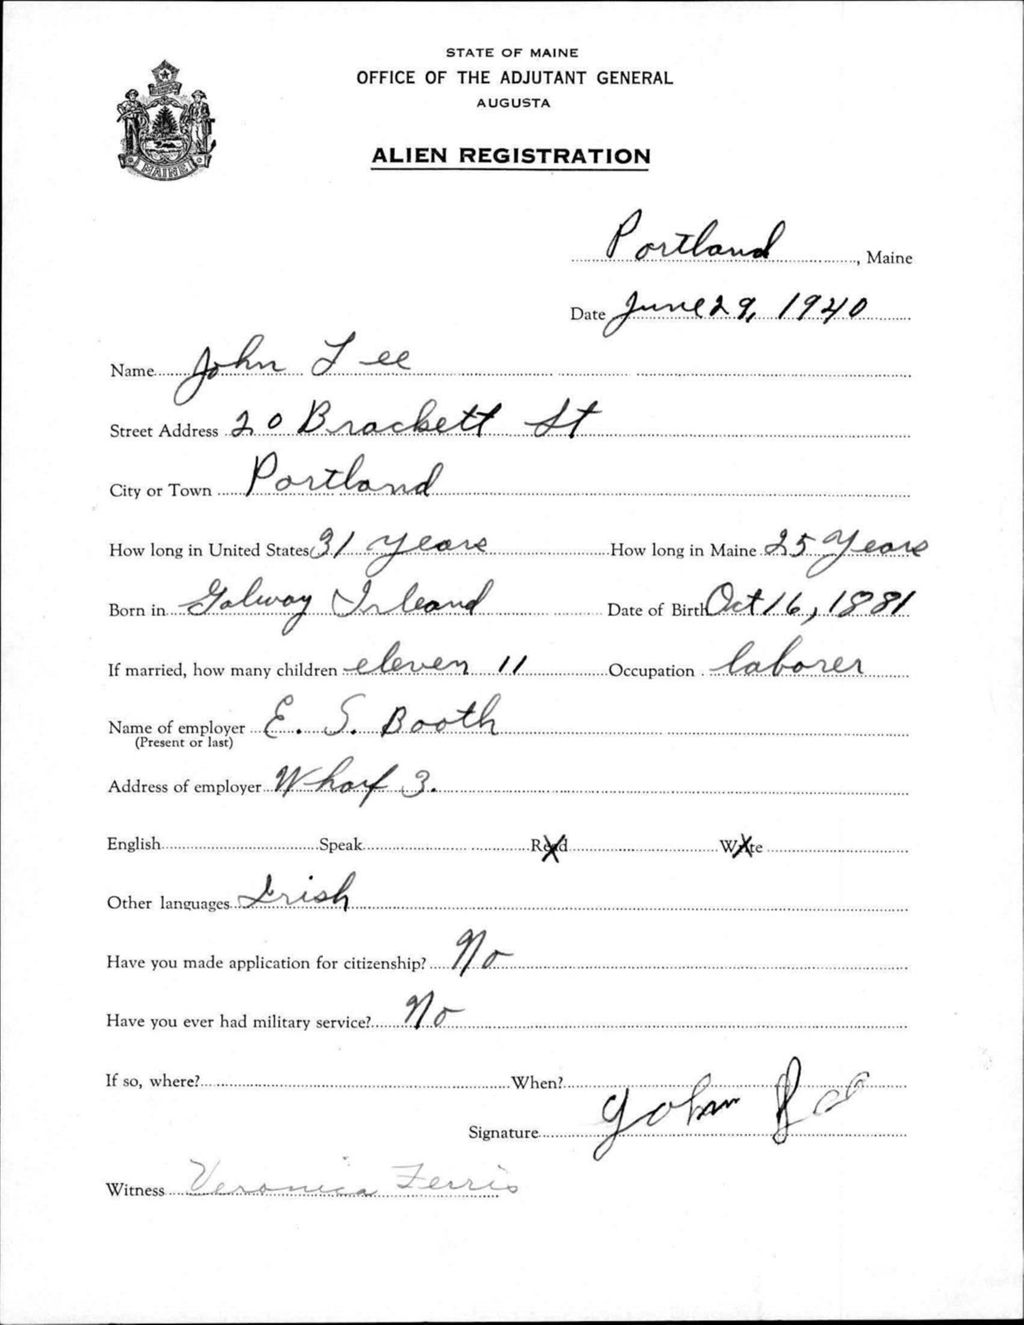 STATE OF MAINE
OFFICE OF THE ADJUTANT GENERAL
AUGUSTA
ALIEN REGISTRATION
MAINE
Portland, Maine
Date June 29, 1940
Name John Lee
Street Address 20 Brackett St
City or Town Portland
How long in United States 31 Years How long in Maine 25 Years
Born in Galway Irleand Date of Birth Oct 16, 1881
If married, how many children eleven 11 Occupation laborer
Name of employer E. S. Booth
(Present or last)
Address of employer Wharf 3.
English Speak Read Write
Other languages Irish
Have you made application for citizenship? No
Have you ever had military service? No
If so, where? When?
Signature John Lee
Witness Veronica Ferris